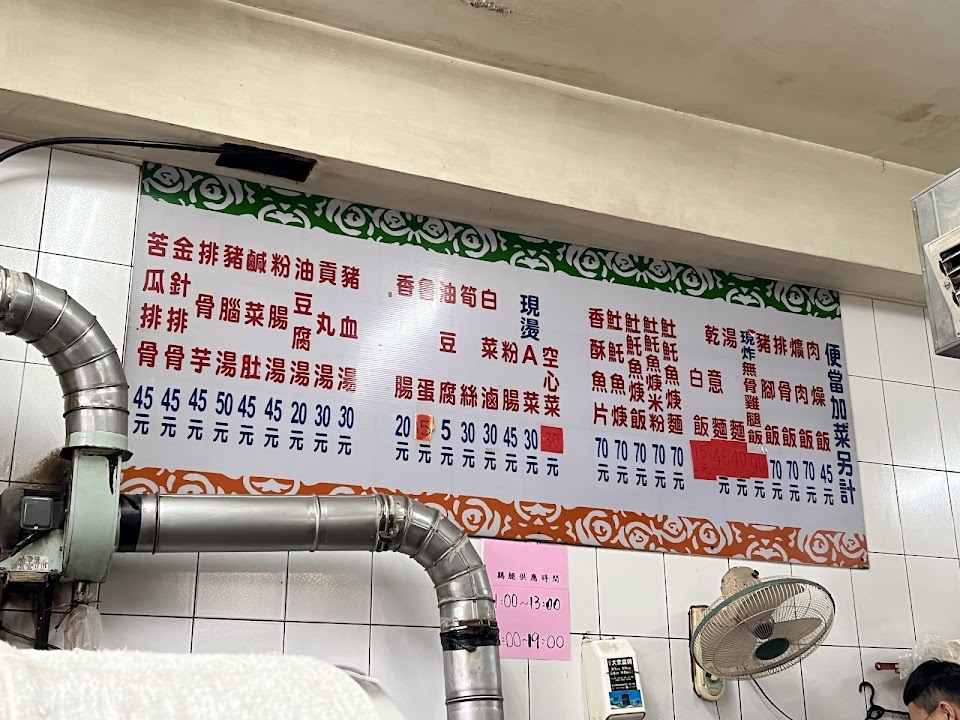 便當加菜另計
肉燥飯 45元
爌肉飯 70元
排骨飯 70元
豬腳飯 70元
現炸無骨雞腿飯 元
湯麵 40元
乾意麵 45元
白飯 15元
魠魚焿麵 70元
魠魚焿米粉 70元
魠魚焿飯 70元
魠魚焿 70元
香酥魚片 70元
現燙
空心菜 30元
A菜 30元
粉腸 45元
白菜滷 30元
筍絲 30元
油豆腐 5元
魯蛋 15元
香腸 20元
豬血湯 30元
貢丸湯 30元
油豆腐湯 20元
粉腸湯 45元
鹹菜肚 45元
豬腦湯 50元
排骨芋 45元
金針排骨 45元
苦瓜排骨 45元
雞腿供應時間
1:00~13:00
:00~19:00